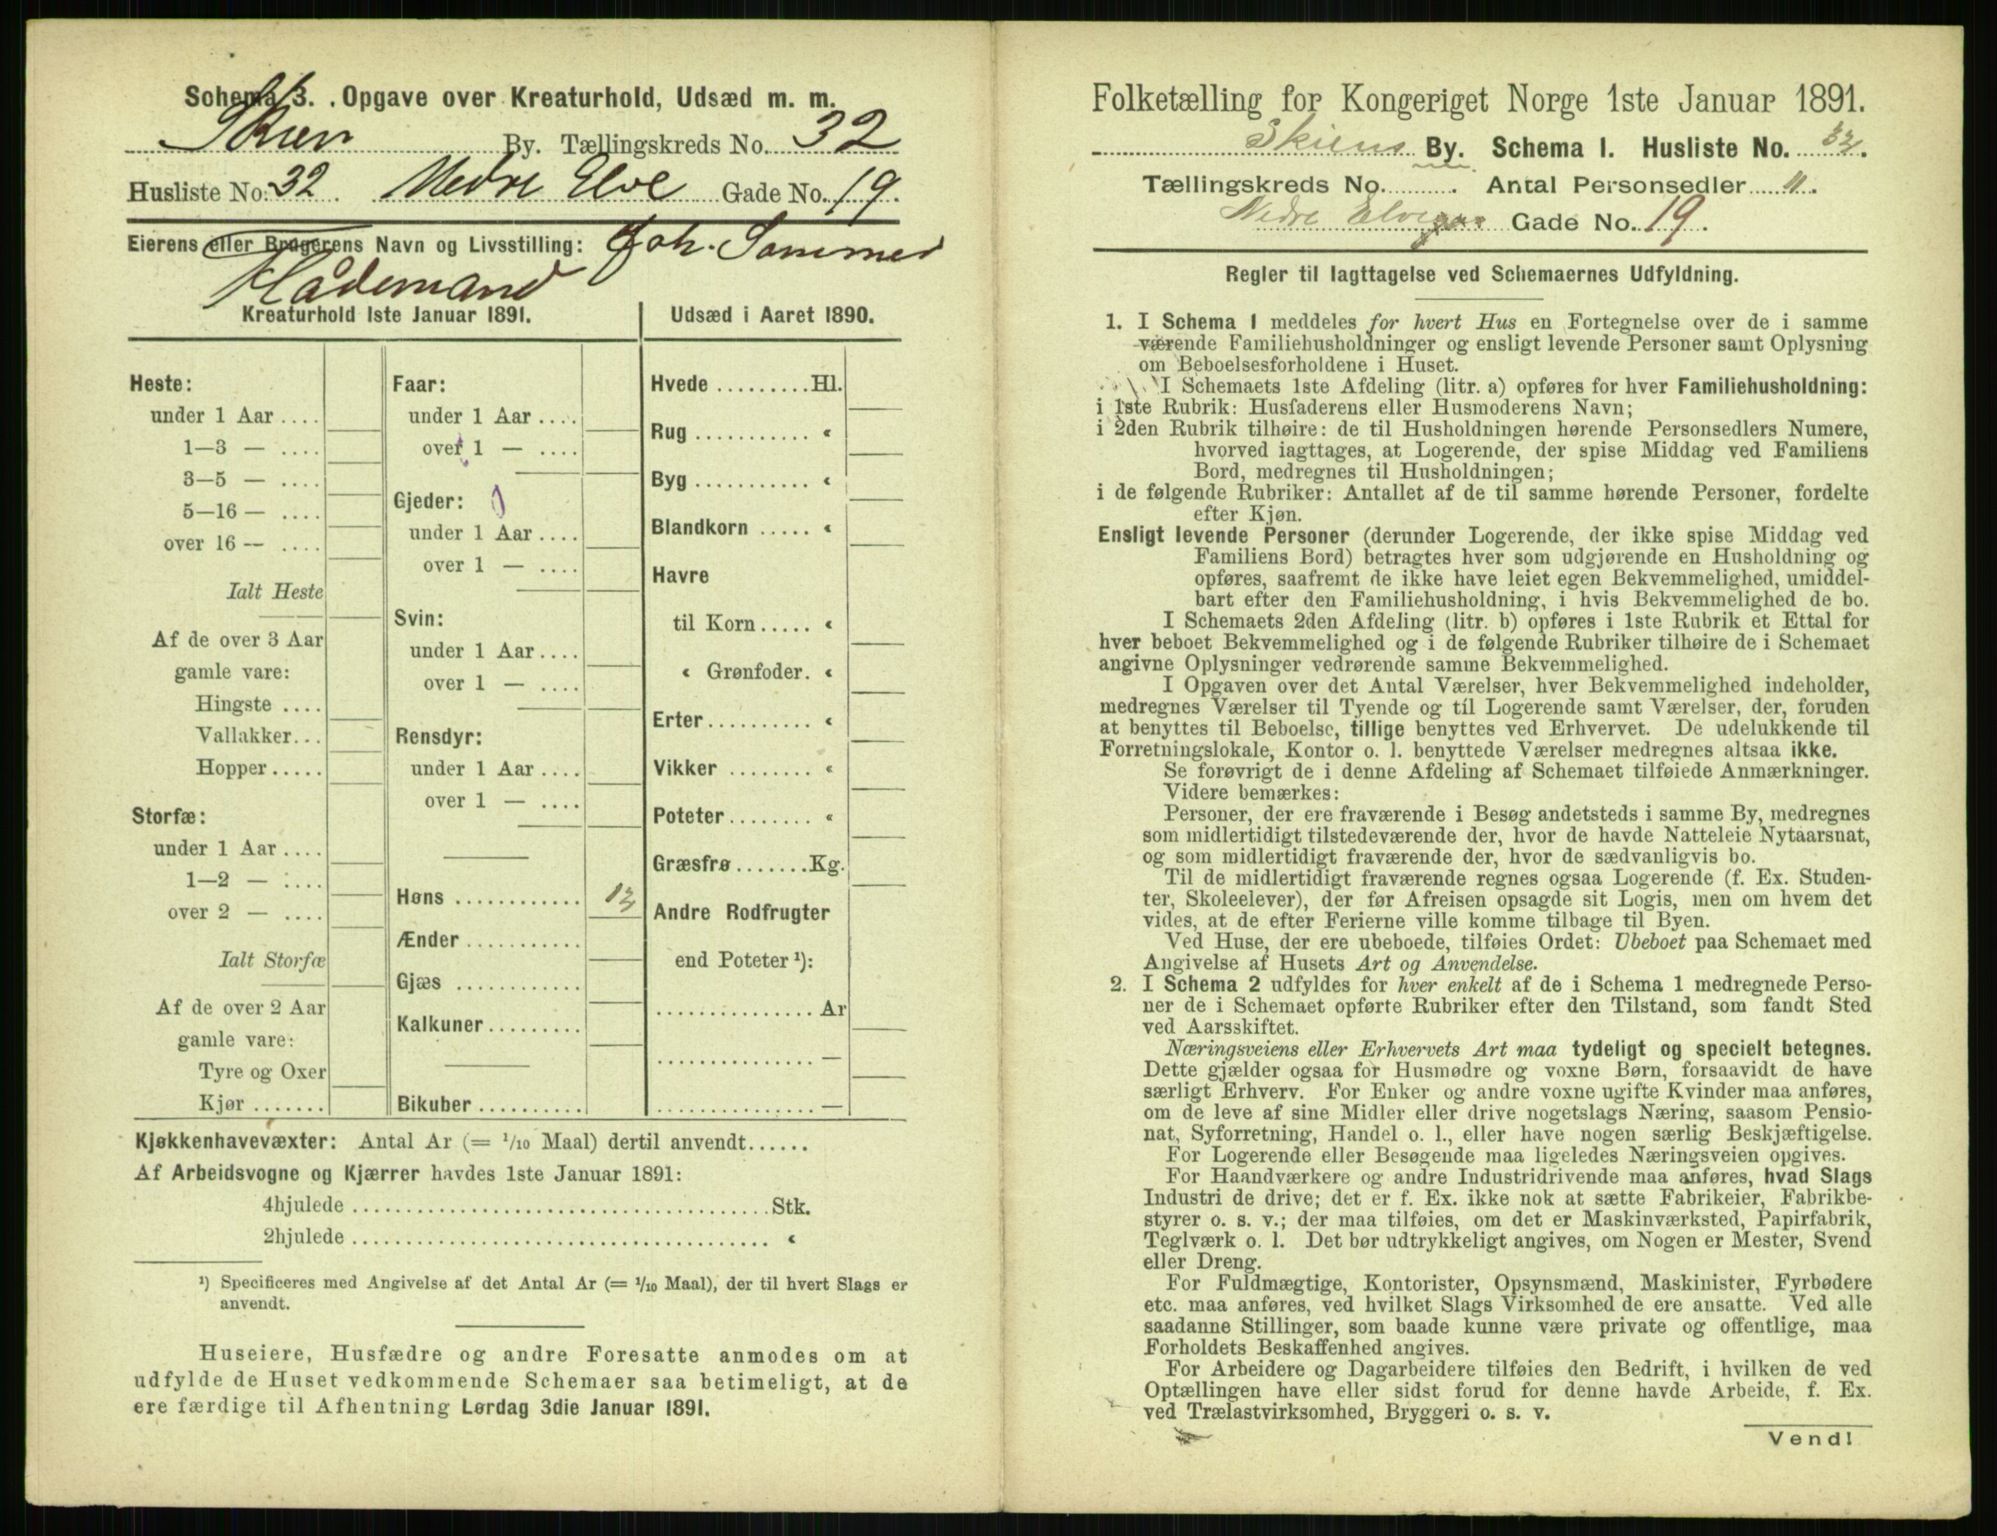 Schema 3. . Opgave over Kreaturhold, Udsæd m. m.
Skien By. Tællingskreds No. 32
Husliste No: 32 . Nedre Elve Gade No. 19.
Eierens eller Brugerens Navn og Livsstilling: Joh. Sommer
Kreaturhold 1ste Januar 1891.
Udsæd i Aaret 1890.
Heste:
under 1 Aar ....
1—3 — ....
3—5 — ....
5—16 — ....
over 16 — ....
Ialt Heste
Af de over 3 Aar
gamle vare:
Hingste ....
Vallakker...
Hopper.....
Storfæ:
under 1 Aar ....
1—2 — ....
over 2 — ....
Ialt Storfæ
Af de over 2 Aar
gamle vare:
Tyre og Oxer
Kjør .......
Faar:
under 1 Aar ....
over 1 — ....
Gjeder:
under 1 Aar ....
over 1 — ....
Svin:
under 1 Aar ....
over 1 — ....
Rensdyr:
under 1 Aar ....
over 1 — ....
Høns ............
Ænder ...........
Gjæs ............
Kalkuner.........
Bikuber ..........
Hvede .........Hl.
Rug ........... «
Byg ........... «
Blandkorn ..... «
Havre
til Korn..... «
« Grønfoder. «
Erter.......... «
Vikker ........ «
Poteter........ «
Græsfrø .......Kg.
Andre Rodfrugter
end Poteter ¹):
............... Ar
............... —
............... —
Kjøkkenhavevæxter: Antal Ar (= 1/10 Maal) dertil anvendt......
Af Arbeidsvogne og Kjærrer havdes 1ste Januar 1891:
4hjulede ..................................... Stk.
2hjulede ..................................... «
¹) Specificeres med Angivelse af det Antal Ar (= 1/10 Maal), der til hvert Slags er
anvendt.
Huseiere, Husfædre og andre Foresatte anmodes om at
udfylde de Huset vedkommende Schemaer saa betimeligt, at de
ere færdige til Afhentning Lørdag 3die Januar 1891.
Folketælling for Kongeriget Norge 1ste Januar 1891.
Skiens By. Schema I. Husliste No. 32.
Tællingskreds No. ........ . Antal Personsedler 11.
Nedre Elve Gade No. 19.
Regler til Iagttagelse ved Schemaernes Udfyldning.
1. I Schema 1 meddeles for hvert Hus en Fortegnelse over de i samme
værende Familiehusholdninger og ensligt levende Personer samt Oplysning
om Beboelsesforholdene i Huset.
I Schemaets 1ste Afdeling (litr. a) opføres for hver Familiehusholdning:
i 1ste Rubrik: Husfaderens eller Husmoderens Navn;
i 2den Rubrik tilhøire: de til Husholdningen hørende Personsedlers Numere,
hvorved iagttages, at Logerende, der spise Middag ved Familiens
Bord, medregnes til Husholdningen;
i de følgende Rubriker: Antallet af de til samme hørende Personer, fordelte
efter Kjøn.
Ensligt levende Personer (derunder Logerende, der ikke spise Middag ved
Familiens Bord) betragtes hver som udgjørende en Husholdning og
opføres, saafremt de ikke have leiet egen Bekvemmelighed, umiddel-
bart efter den Familiehusholdning, i hvis Bekvemmelighed de bo.
I Schemaets 2den Afdeling (litr. b) opføres i 1ste Rubrik et Ettal for
hver beboet Bekvemmelighed og i de følgende Rubriker tilhøire de i Schemaet
angivne Oplysninger vedrørende samme Bekvemmelighed.
I Opgaven over det Antal Værelser, hver Bekvemmelighed indeholder,
medregnes Værelser til Tyende og til Logerende samt Værelser, der, foruden
at benyttes til Beboelse, tillige benyttes ved Erhvervet. De udelukkende til
Forretningslokale, Kontor o. l. benyttede Værelser medregnes altsaa ikke.
Se forøvrigt de i denne Afdeling af Schemaet tilføiede Anmærkninger.
Videre bemærkes:
Personer, der ere fraværende i Besøg andetsteds i samme By, medregnes
som midlertidigt tilstedeværende der, hvor de havde Natteleie Nytaarsnat,
og som midlertidigt fraværende der, hvor de sædvanligvis bo.
Til de midlertidigt fraværende regnes ogsaa Logerende (f. Ex. Studen-
ter, Skoleelever), der før Afreisen opsagde sit Logis, men om hvem det
vides, at de efter Ferierne ville komme tilbage til Byen.
Ved Huse, der ere ubeboede, tilføies Ordet: Ubeboet paa Schemaet med
Angivelse af Husets Art og Anvendelse.
2. I Schema 2 udfyldes for hver enkelt af de i Schema 1 medregnede Perso-
ner de i Schemaet opførte Rubriker efter den Tilstand, som fandt Sted
ved Aarsskiftet.
Næringsveiens eller Erhvervets Art maa tydeligt og specielt betegnes.
Dette gjælder ogsaa for Husmødre og voxne Børn, forsaavidt de have
særligt Erhverv. For Enker og andre voxne ugifte Kvinder maa anføres,
om de leve af sine Midler eller drive nogetslags Næring, saasom Pensio-
nat, Syforretning, Handel o. l., eller have nogen særlig Beskjæftigelse.
For Logerende eller Besøgende maa ligeledes Næringsveien opgives.
For Haandværkere og andre Industridrivende maa anføres, hvad Slags
Industri de drive; det er f. Ex. ikke nok at sætte Fabrikeier, Fabrikbe-
styrer o. s. v.; der maa tilføies, om det er Maskinværksted, Papirfabrik,
Teglværk o. l. Det bør udtrykkeligt angives, om Nogen er Mester, Svend
eller Dreng.
For Fuldmægtige, Kontorister, Opsynsmænd, Maskinister, Fyrbødere
etc. maa anføres, ved hvilket Slags Virksomhed de ere ansatte. Ved alle
saadanne Stillinger, som baade kunne være private og offentlige, maa
Forholdets Beskaffenhed angives.
For Arbeidere og Dagarbeidere tilføies den Bedrift, i hvilken de ved
Optællingen have eller sidst forud for denne havde Arbeide, f. Ex.
ved Trælastvirksomhed, Bryggeri o. s. v.
Vend!